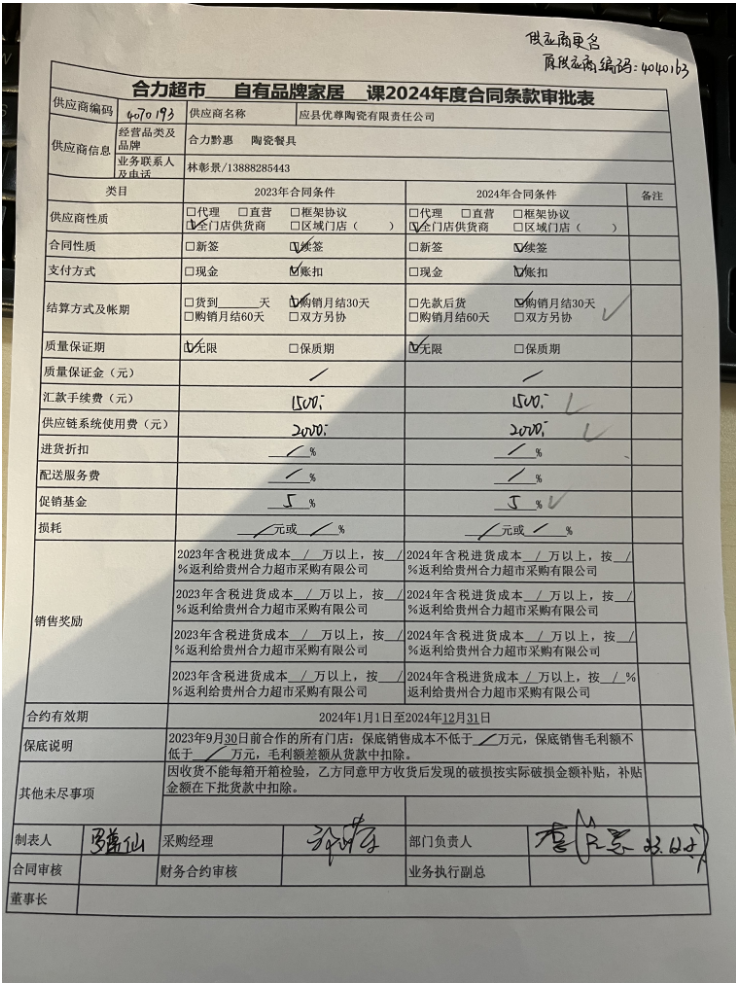 供应商更名
原供应商编码:4040163
合力超市 自有品牌家居 课2024年度合同条款审批表
供应商编码 4070193 供应商名称 应县优尊陶瓷有限责任公司
供应商信息 经营品类及品牌 合力黔惠 陶瓷餐具
业务联系人及电话 林彰景/13888285443
类目 2023年合同条件 2024年合同条件 备注
供应商性质 □代理 □直营 □框架协议 □代理 □直营 □框架协议
☑全门店供货商 □区域门店（ ） ☑全门店供货商 □区域门店（ ）
合同性质 □新签 ☑续签 □新签 ☑续签
支付方式 □现金 ☑账扣 □现金 ☑账扣
结算方式及帐期 □货到____天 ☑购销月结30天 □先款后货 ☑购销月结30天 ✓
□购销月结60天 □双方另协 □购销月结60天 □双方另协
质量保证期 ☑无限 □保质期 ☑无限 □保质期
质量保证金（元） / /
汇款手续费（元） 1500.- 1500.- ✓
供应链系统使用费（元） 2000.- 2000.- ✓
进货折扣 / % / %
配送服务费 / % / %
促销基金 5 % 5 % ✓
损耗 / 元或 / % / 元或 / %
销售奖励
2023年含税进货成本 / 万以上，按 / 2024年含税进货成本 / 万以上，按 /
%返利给贵州合力超市采购有限公司 %返利给贵州合力超市采购有限公司
2023年含税进货成本 / 万以上，按 / 2024年含税进货成本 / 万以上，按 /
%返利给贵州合力超市采购有限公司 %返利给贵州合力超市采购有限公司
2023年含税进货成本 / 万以上，按 / 2024年含税进货成本 / 万以上，按 /
%返利给贵州合力超市采购有限公司 %返利给贵州合力超市采购有限公司
2023年含税进货成本 / 万以上，按 / 2024年含税进货成本 / 万以上，按 / %
%返利给贵州合力超市采购有限公司 返利给贵州合力超市采购有限公司
合约有效期 2024年1月1日至2024年12月31日
保底说明 2023年9月30日前合作的所有门店：保底销售成本不低于 / 万元，保底销售毛利额不
低于 / 万元，毛利额差额从货款中扣除。
其他未尽事项 因收货不能每箱开箱检验，乙方同意甲方收货后发现的破损按实际破损金额补贴，补贴
金额在下批货款中扣除。
制表人 采购经理 部门负责人
合同审核 财务合约审核 业务执行副总
董事长